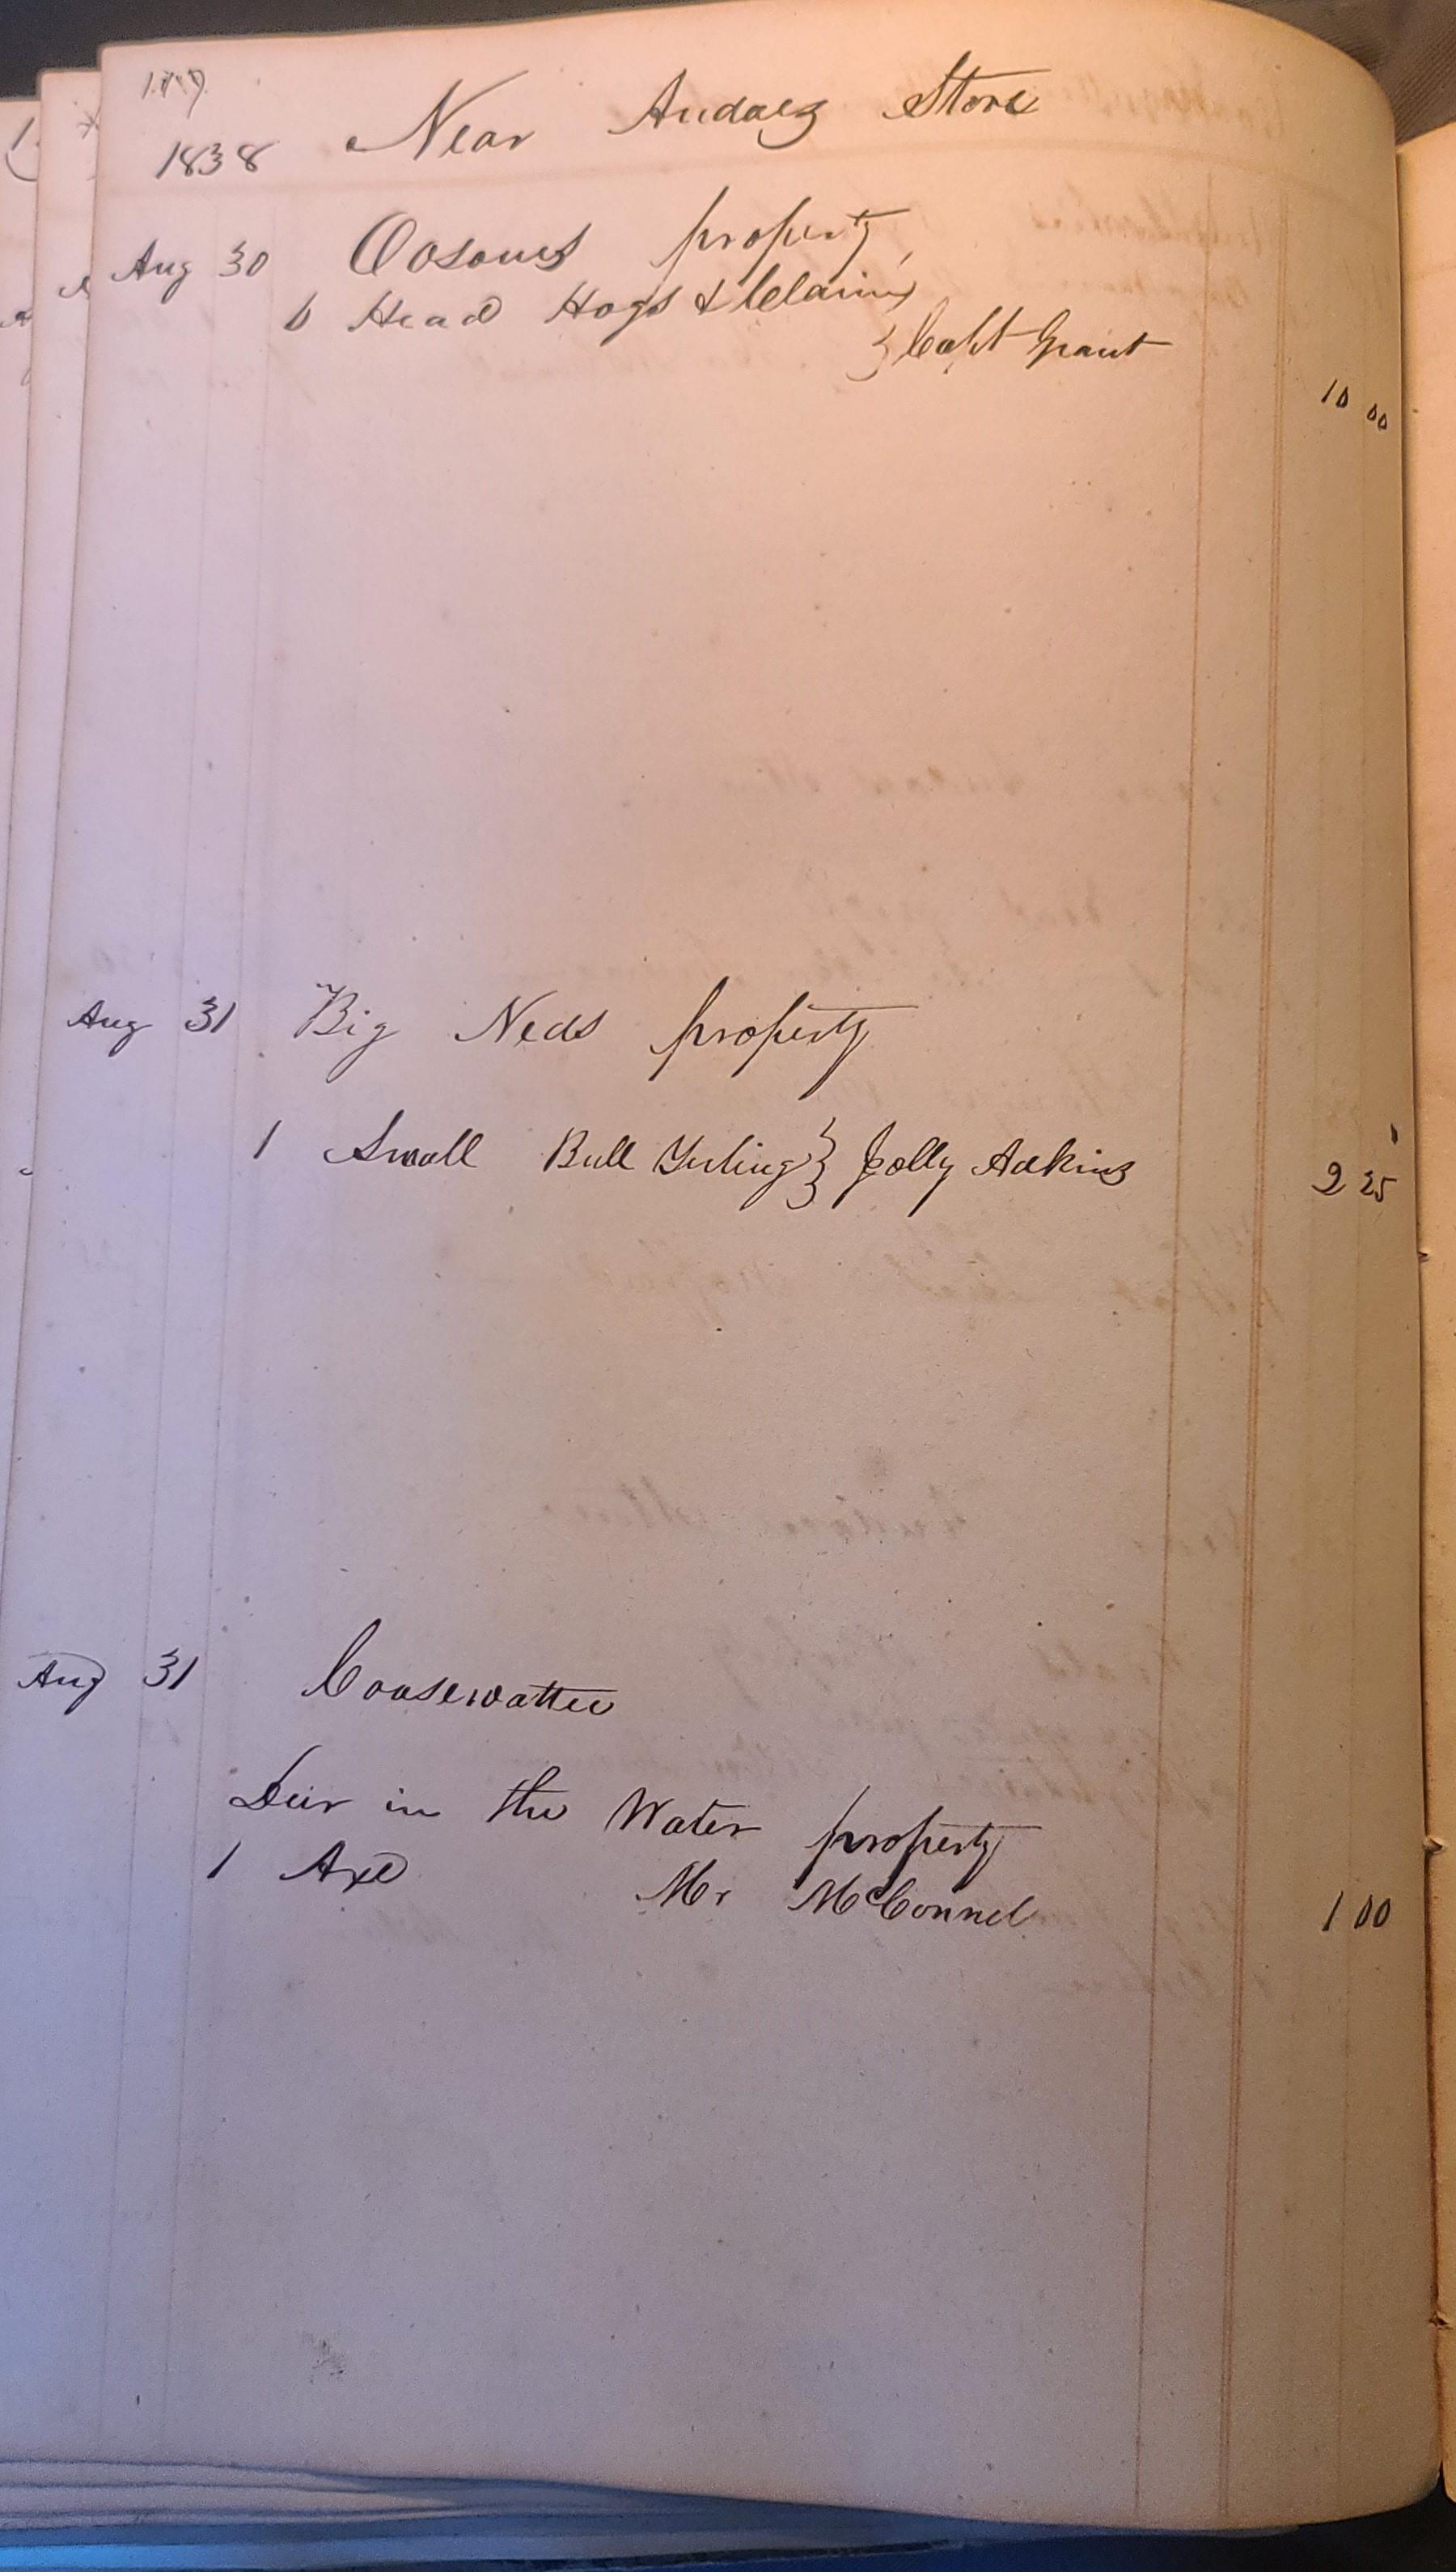 1838 Near Audaez Store
Aug 30 Oosoues property
6 Head Hogs & Claim
} Capt Grant
10 00
Aug 31 Big Neds property
1 Small Bull Yerling } Jolly Adkins 2 25
Aug 31 Coosewattee
Deir in the Water property
1 Axe Mr McConnel 1 00